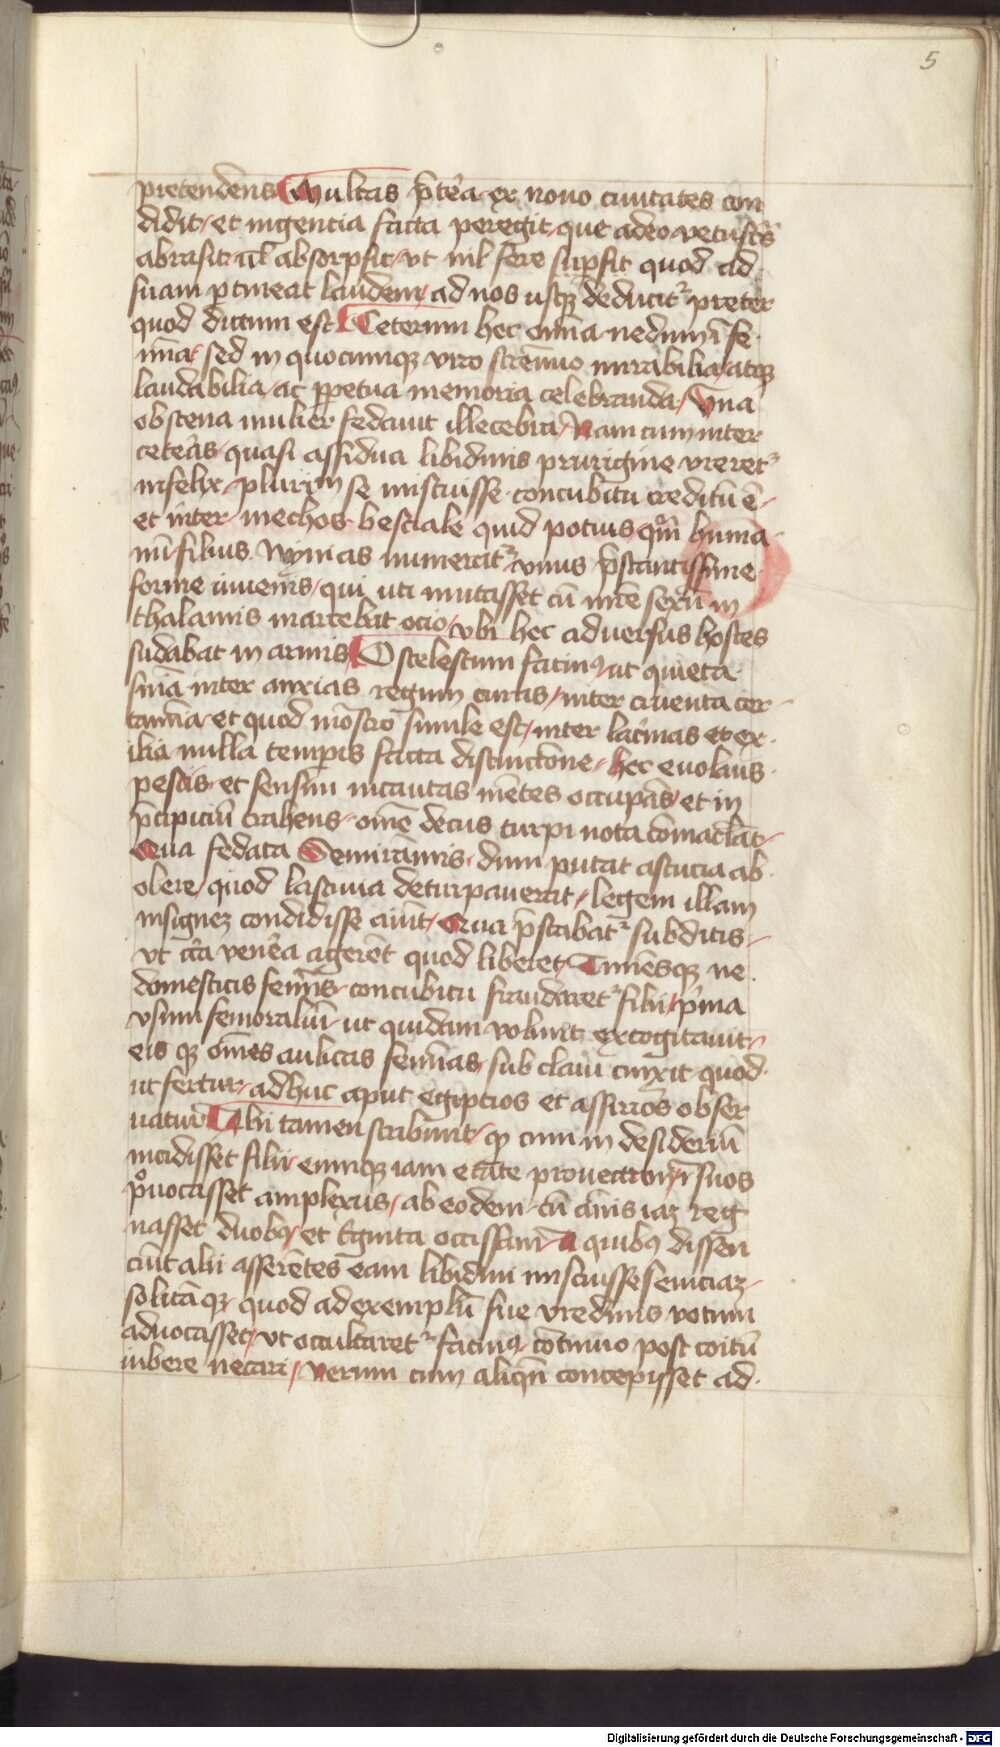 5
pretendens Multas p̄terea ex nouo ciuitates con
didit / et ingencia facta peregit / que adeo vetustas
abrasit ut absorpsit / vt nil fere supsit quod ad
suam ptineat laudem / ad nos usqȝ deducitᷣ preter
quod dictum est Ceterum hec omnia nedum ī fe
mina / sed in quocumqȝ viro strennuo mirabilia / atqȝ
laudabilia / ac ꝑpetua memoria celebranda / Vna
obscena mulier fedauit illecebra / Nam cum inter
ceteras / quasi assidua libidinis prurigine vreretᷣ
infelix / plurim se miscuisse concubitu creditū ē /
et inter mechos bestiale quid potius qm̄ huma
num filius Nynias numeratᷣ vnus p̄stantissime
forme iuuenis / qui uti mutasset cū mr̄e sexū in
thalamis marcebat ocio / vbi hec aduersus hostes
sudabat in armis O scelestum facinꝰ ut quieta
sinā inter anxias regum curas / inter cruenta cer
tamīa / et quod mōstro simile est / inter lac̄mas et ex
ilia nulla temꝑis facta distinctōne / hec euolans
pestis et sensim incautas mētes occupās / et in
p̄cipiciū trahens / om̄e decus turpi nota
Qua fedata Semiramis / dum putat astucia ab
olere / quod lasciuia deturpauerat / legem illam
insignem condidisse aiūt / Qua p̄stabatᷣ subditis /
vt circa venerea agerēt quod liberet / Timēsqȝ ne
domesticis feminis concubitu fraudaretᷣ filii / p̄ma
vsum femoraliū / ut quidam volunt excogitauit /
eis qȝ om̄es aulicas femīas / sub claui cinxit quod
ut fertur / adhuc aput egipcios et assirios obser
uatur Alii tamen scribunt / ꝙ cum in desideriū
incidisset filii / eumqȝ iam etate prouectum / ī suos
ꝓuocasset amplexus / ab eodem cū annis iam reg
nasset duobꝰ et triginta occissam A quibꝰ dissen
ciūt alii asserētes eam libidini miscuisse seuiciam /
solitāqȝ quod ad exemplū sue vredinis votum
aduocasset / vt occultaretᷣ facinꝰ cōtinuo post coitū
iubere necari / verum cum aliqn̄ concepisset ad
Digitalisierung gefördert durch die Deutsche Forschungsgemeinschaft - DFG